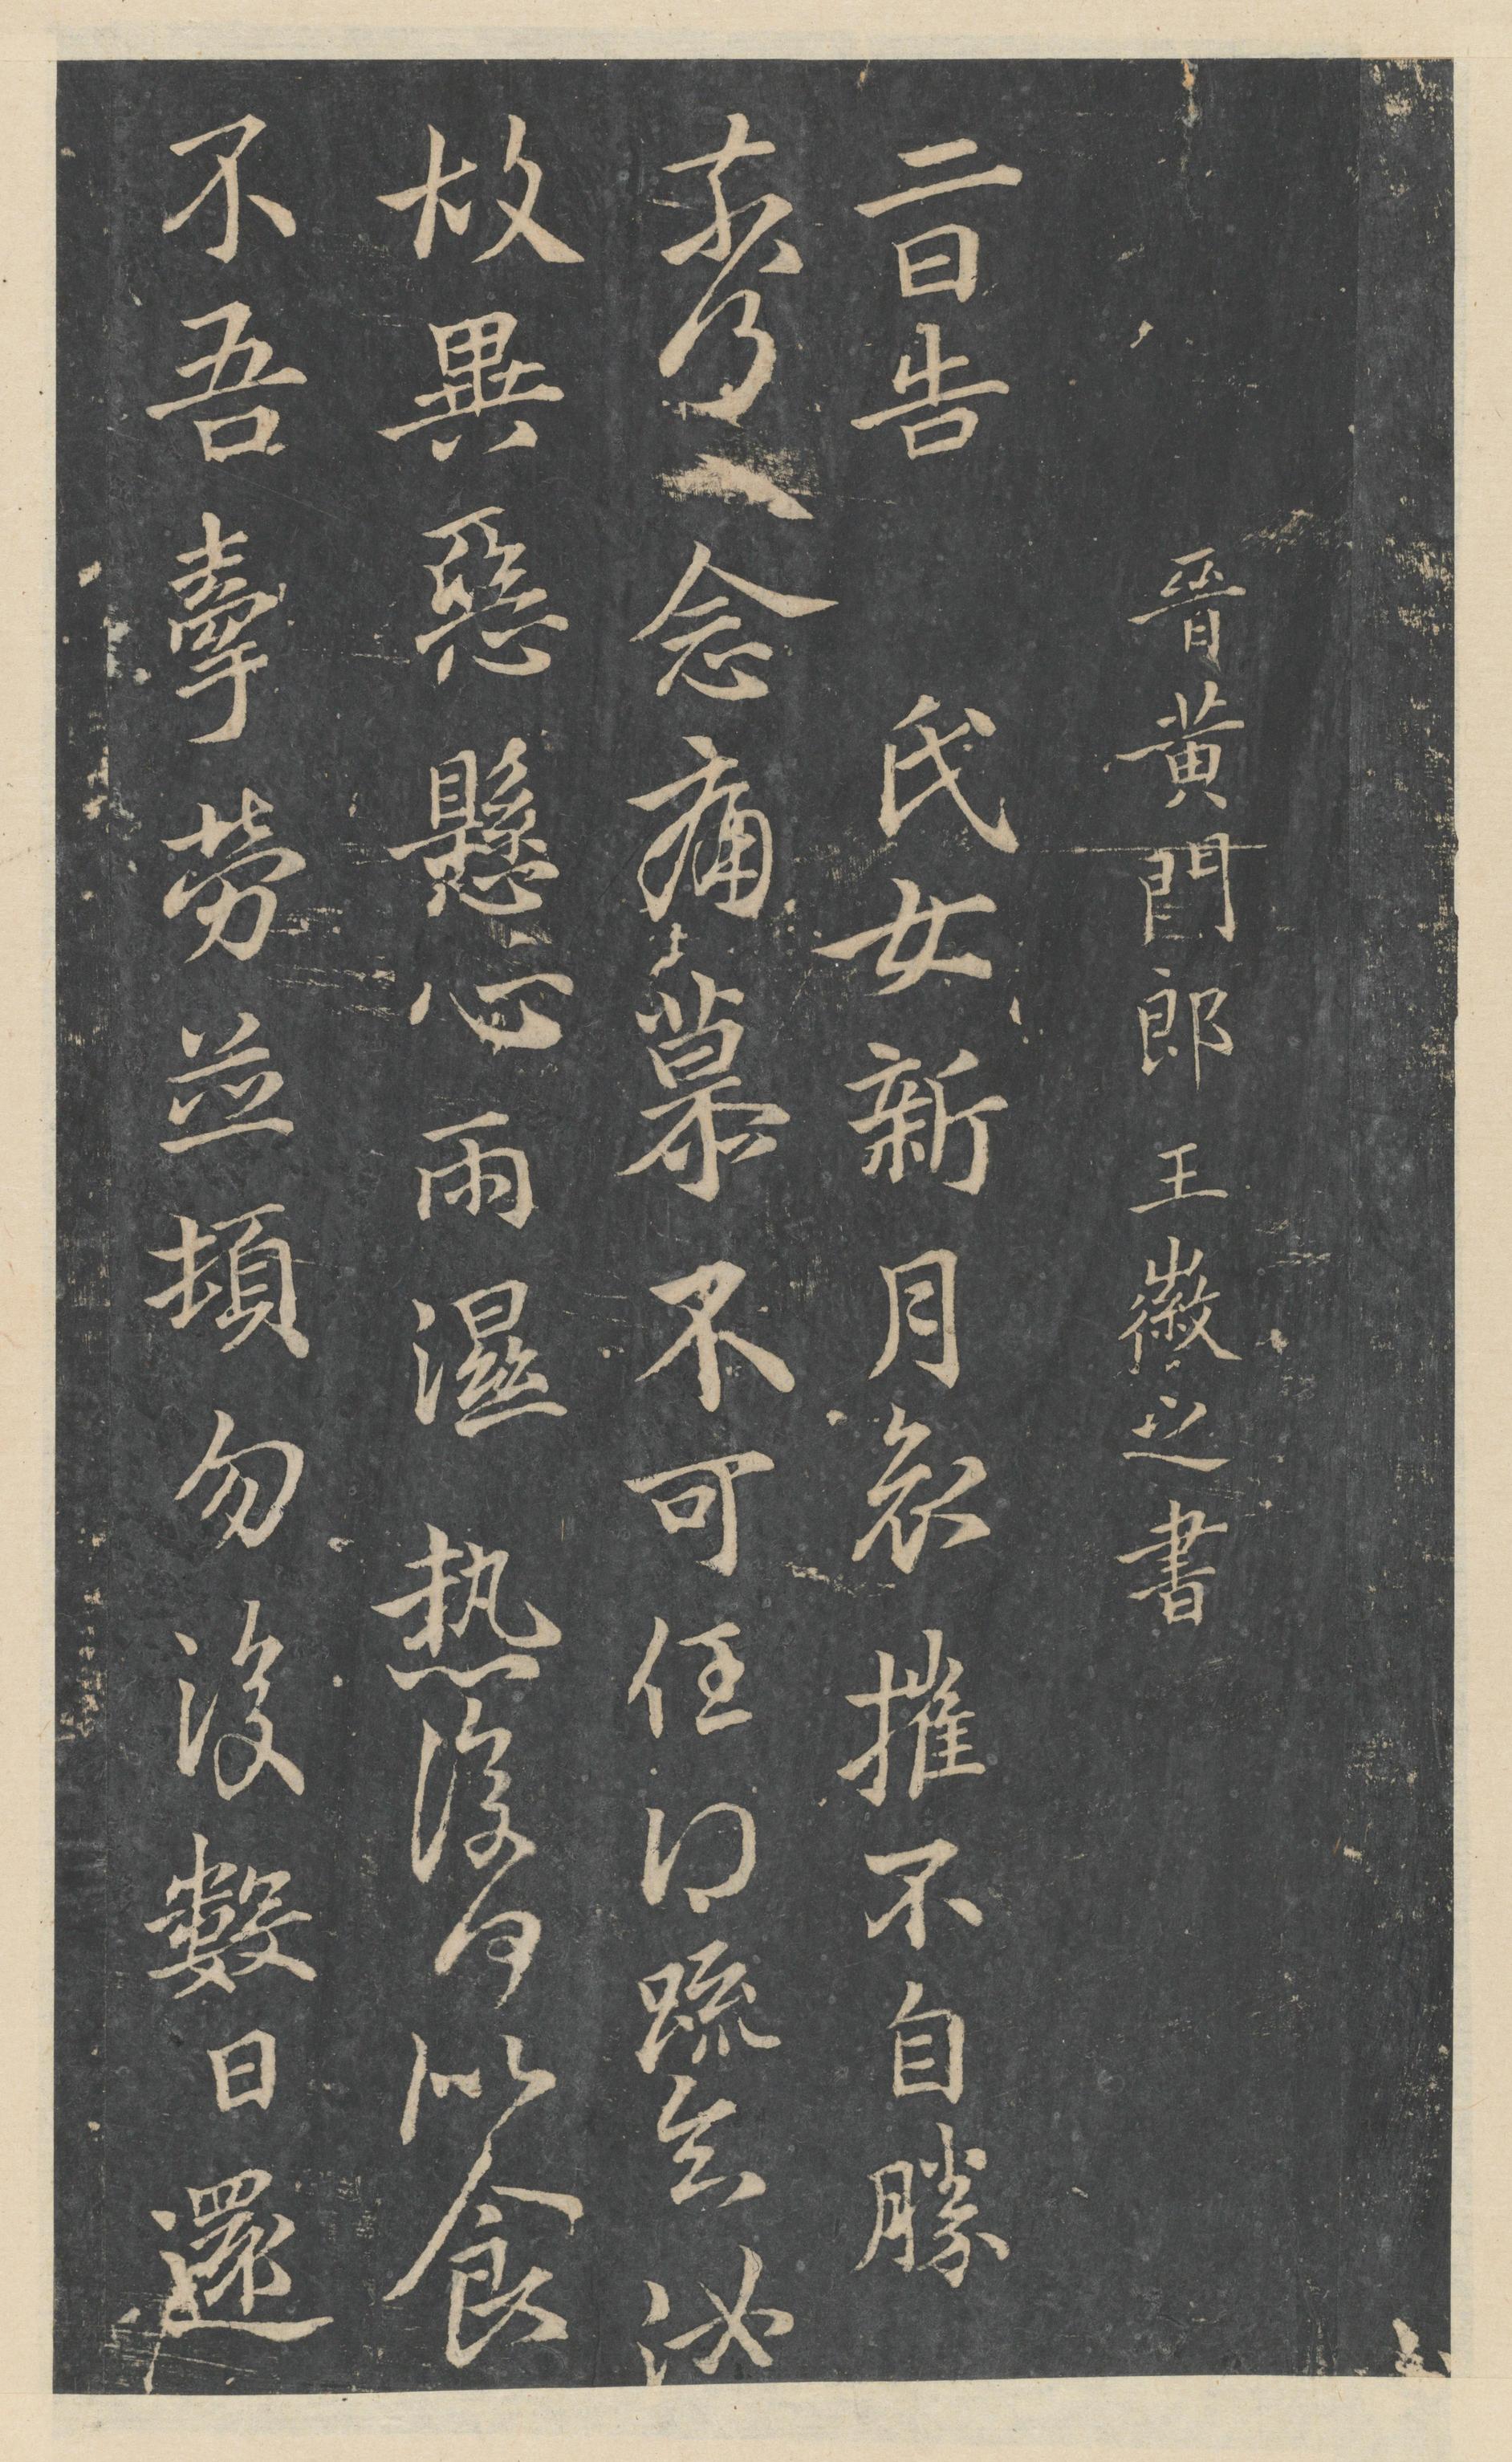 晉黃門郎王徽之書
二日告 氏女新月哀摧不自勝
柰何〻念痛慕不可任得疏知汝
故異惡懸心雨濕熱復何似食
不吾牽勞並頓勿復數日還